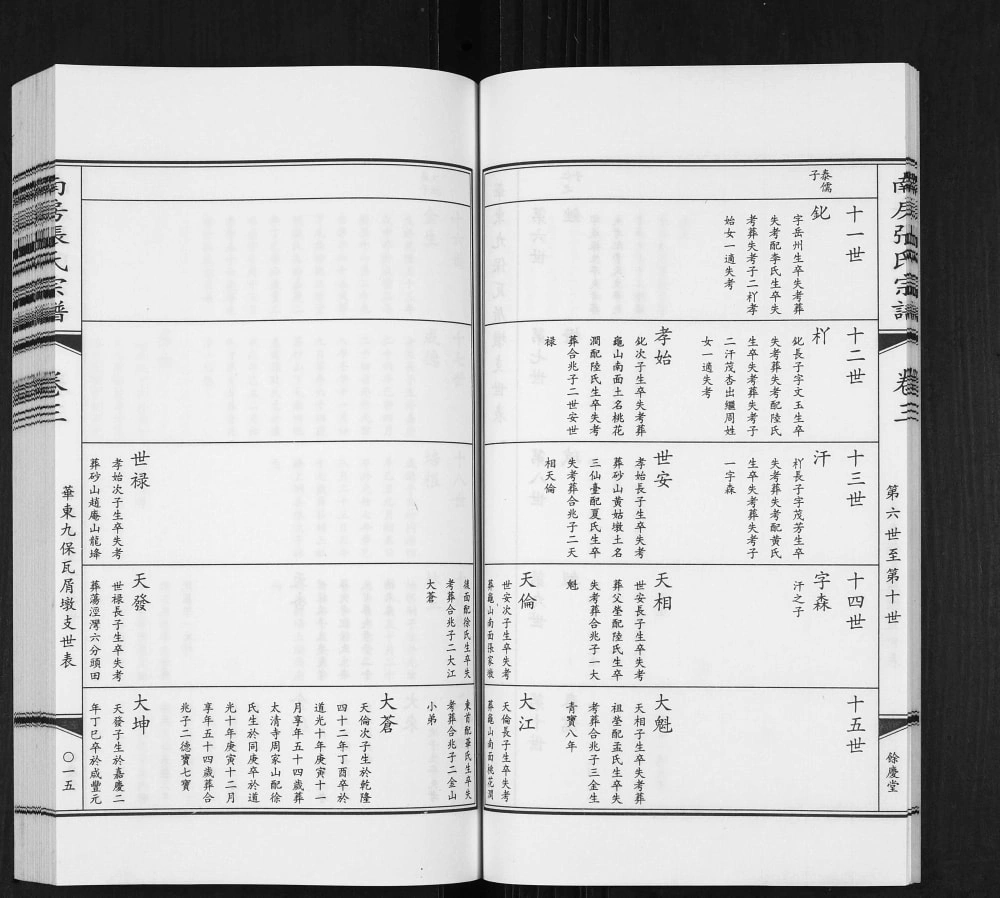 南房張氏宗譜
卷三
第六世至第十世
餘慶堂
十一世
泰儒
子
釓
字岳州生卒失考葬
失考配李氏生卒失
考葬失考子二杧孝
始女一適失考
十二世
杧
釓長子字文玉生卒
失考葬失考配陸氏
生卒失考葬失考子
二汗茂杏出繼周姓
女一適失考
孝始
釓次子生卒失考葬
龜山南面土名桃花
澗配陸氏生卒失考
葬合兆子二世安世
祿
十三世
汗
杧長子字茂芳生卒
失考葬失考配黃氏
生卒失考葬失考子
一字森
世安
孝始長子生卒失考
葬砂山黃姑墩土名
三仙臺配夏氏生卒
失考葬合兆子二天
相天倫
十四世
字森
汗之子
天相
世安長子生卒失考
葬父塋配陸氏生卒
失考葬合兆子一大
魁
天倫
世安次子生卒失考
葬龜山南面張家墩
十五世
大魁
天相子生卒失考葬
祖塋配孟氏生卒失
考葬合兆子三金生
青寶八年
大江
天倫長子生卒失考
葬龜山南面桃花澗
世禄
孝始次子生卒失考
葬砂山趙庵山龍絳
後面配徐氏生卒失
考葬合兆子二大江
大蒼
天發
世禄長子生卒失考
葬蕩涇灣六分頭田
東首配華氏生卒失
考葬合兆子二金山
小弟
大蒼
天倫次子生於乾隆
四十二年丁酉卒於
道光十年庚寅十一
月享年五十四歲葬
太清寺周家山配徐
氏生於同庚卒於道
光十年庚寅十二月
享年五十四歲葬合
兆子二德寶七寶
大坤
天發子生於嘉慶二
年丁巳卒於咸豐元
南房張氏宗譜
卷三
華東九保瓦屑墩支世表
〇一五